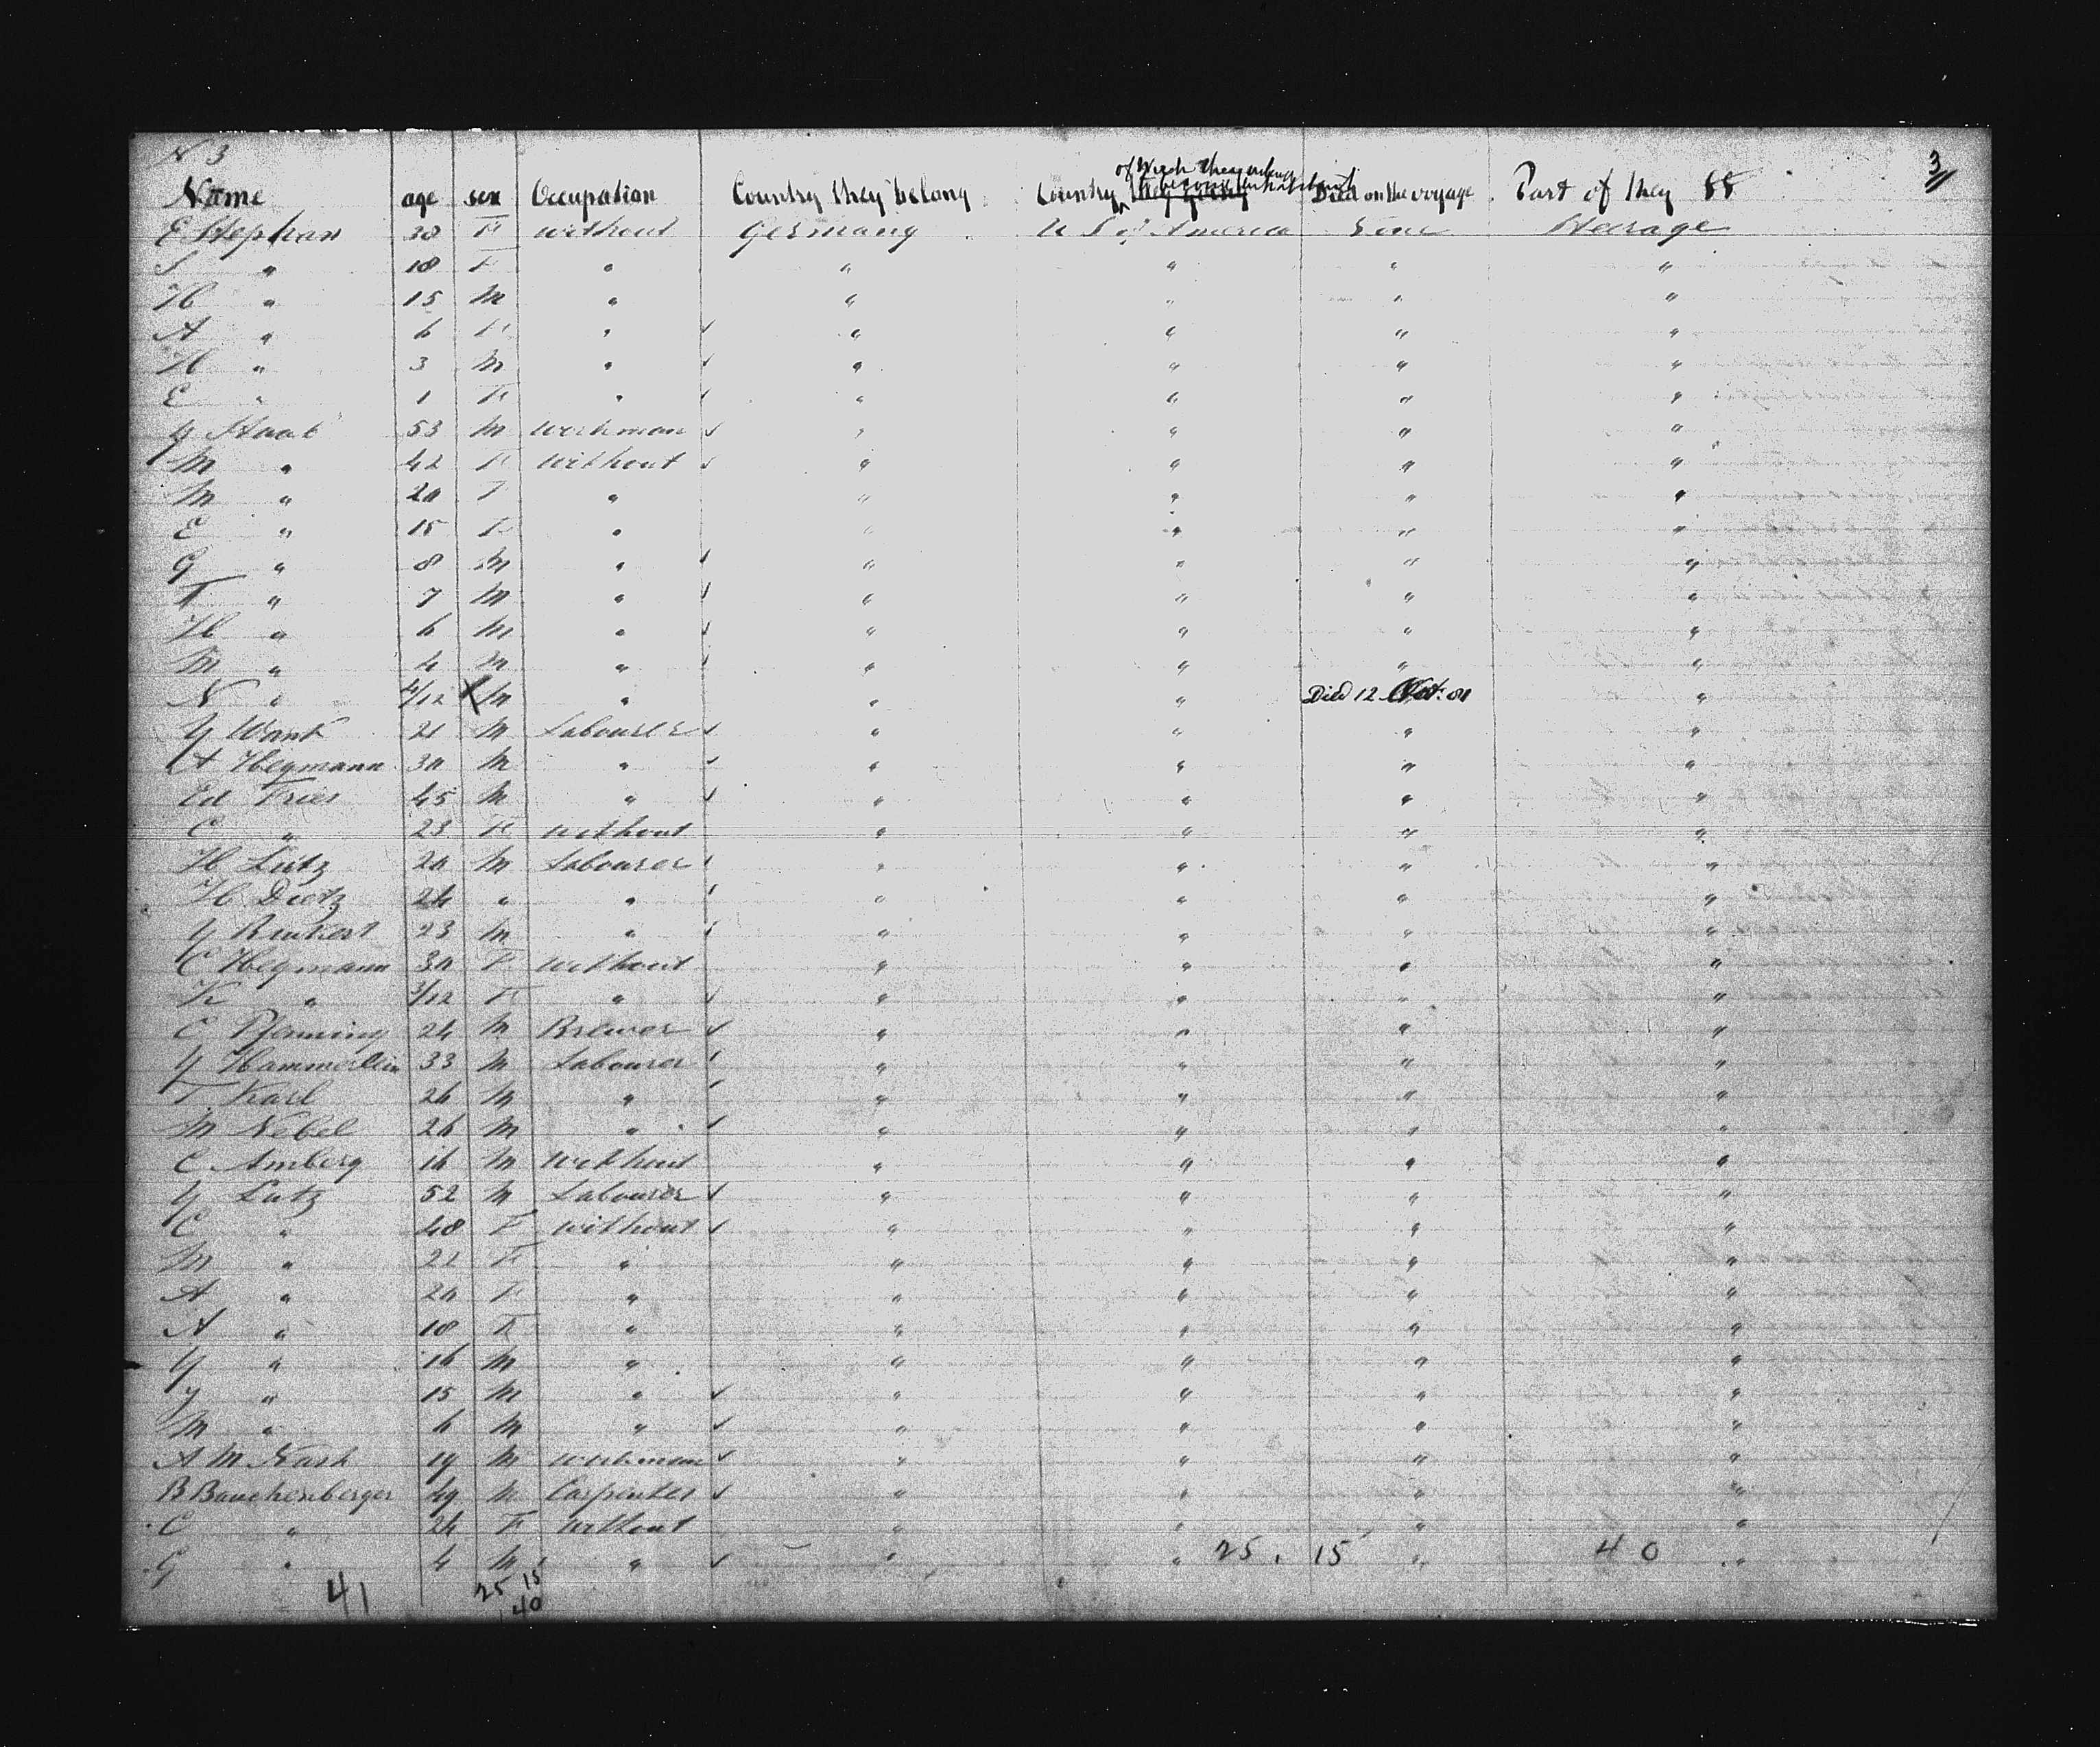 N 3
3/
of Wich they intend
become inhabitants
Name age sex Occupation Country they belong Country they going Died on the voyage Part of they SS
E Stephan 38 F without Germany U S of America None Steerage
S " 18 F " " " " "
H " 15 M " " " " "
A " 6 F " " " " "
H " 3 M " " " " "
E " 1 F " " " " "
G Staab 53 M workman " " " "
M " 42 F without " " " "
M " 20 F " " " " "
E " 15 F " " " " "
G " 8 M " " " " "
T " 7 M " " " " "
H " 6 M " " " " "
M " 4 M " " " " "
N " 4/12 X M " " " Died 12 Oct. 81 "
G Want 21 M Labourer " " " "
A Hegmann 30 M " " " " "
Ed Fries 45 M " " " " "
C " 23 F without " " " "
H Lutz 20 M Labourer " " " "
H Dietz 24 " " " " " "
G 23 M " " " " "
C Hegmann 30 F without " " " "
K " 3/12 F " " " " "
C Pfenning 24 M Brewer " " " "
G Hammerlein 33 M Labourer " " " "
T Karl 26 M " " " " "
M Nebel 26 M " " " " "
C Amberg 16 M without " " " "
G Lutz 52 M Labourer " " " "
C " 48 F without " " " "
M " 22 F " " " " "
A " 20 F " " " " "
A " 18 F " " " " "
G " 16 M " " " " "
J " 15 M " " " " "
M " 6 M " " " " "
A M Nash 19 M workman " " " "
B Bauchenberger 49 M Carpenter " " " "
C " 24 F without " " " "
G " 4 M " " " 25 . 15 " 40 "
41 25 15
40